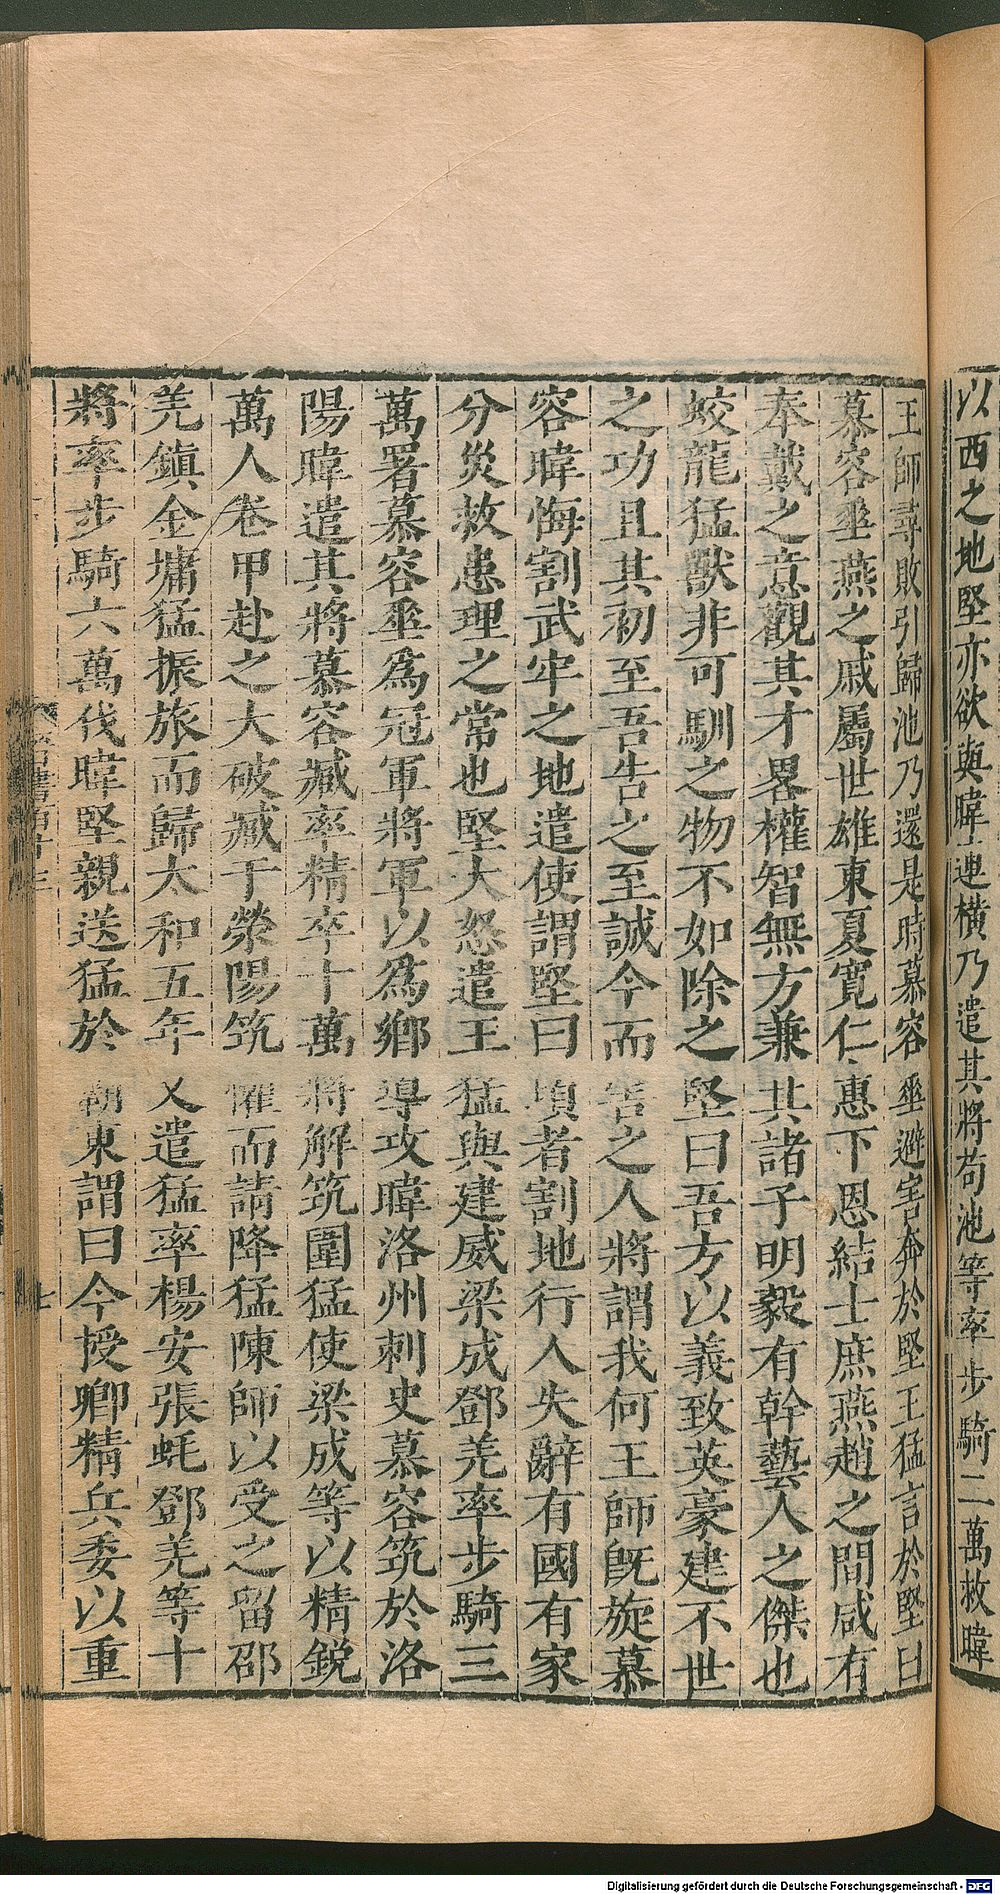 以西之地堅亦欲與暐連橫乃遣其將苟池等率步騎二萬救暐
王師尋敗引歸池乃還是時慕容垂避害奔於堅王猛言於堅曰
慕容垂燕之戚屬世雄東夏寬仁惠下恩結士庶燕趙之間咸有
奉戴之意觀其才畧權智無方兼其諸子明毅有幹藝人之傑也
蛟龍猛獸非可馴之物不如除之堅曰吾方以義致英豪建不世
之功且其初至吾告之至誠今而害之人將謂我何王師旣旋慕
容暐悔割武牢之地遣使謂堅曰頃者割地行人失辭有國有家
分災救患理之常也堅大怒遣王猛與建威梁成鄧羌率步騎三
萬署慕容垂爲冠軍將軍以爲鄉導攻暐洛州刺史慕容筑於洛
陽暐遣其將慕容臧率精卒十萬將解筑圍猛使梁成等以精銳
萬人卷甲赴之大破臧于滎陽筑懼而請降猛陳師以受之留鄧
羌鎮金墉猛振旅而歸太和五年又遣猛率楊安張蚝鄧羌等十
將率步騎六萬伐暐堅親送猛於霸東謂曰今授卿精兵委以重
Digitalisierung gefördert durch die Deutsche Forschungsgemeinschaft - DFG